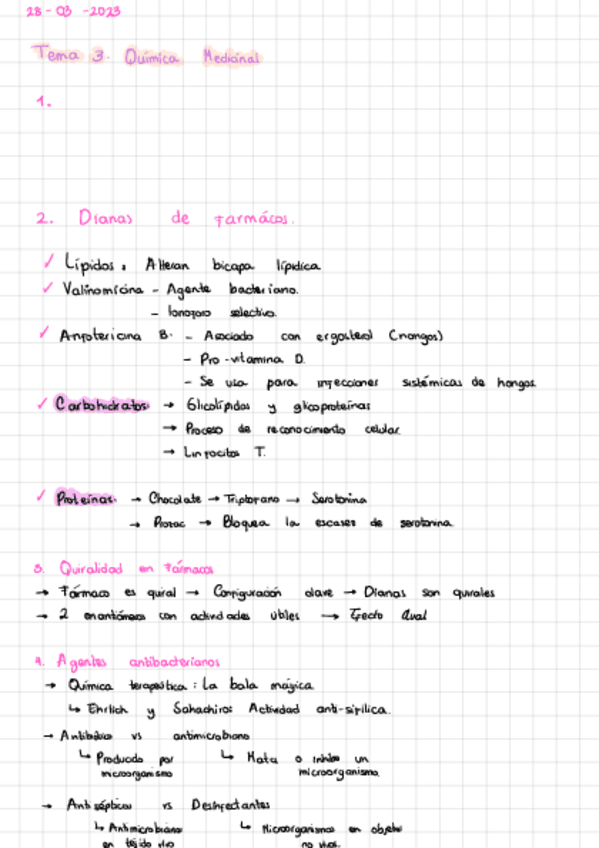 28-03-2023
Tema 3. Química Medicinal
1.
2. Dianas de Farmácos.
✓ Lípidos: Alteran bicapa lipídica
✓ Valinomicina - Agente bacteriano.
- Ionoforo selectivo.
✓ Anfotericina B. - Asociado con ergosterol (hongos)
- Pro-vitamina D.
- Se usa para infecciones sistémicas de hongos.
✓ Carbohidratos → Glicolípidos y glicoproteínas
→ Proceso de reconocimiento celular.
→ Linfocitos T.
✓ Proteínas. → Chocolate → Triptofano → Serotonina
→ Prozac → Bloquea la escases de serotonina.
3. Quiralidad en Fármacos
→ Fármaco es quiral → Configuración clave → Dianas son quirales
→ 2 enantiómeros con actividades útiles → Efecto dual
4. Agentes antibacterianos
→ Química terapeútica: La bala mágica.
↳ Ehrlich y Sahachiro: Actividad anti-sifílica.
→ Antibiótico vs antimicrobiano
↳ Producido por ↳ Mata o inhibe un
microorganismo microorganismo
→ Antisépticos vs Desinfectantes
↳ Antimicrobiano ↳ Microorganismos en objeto
en tejido vivo no vivos.